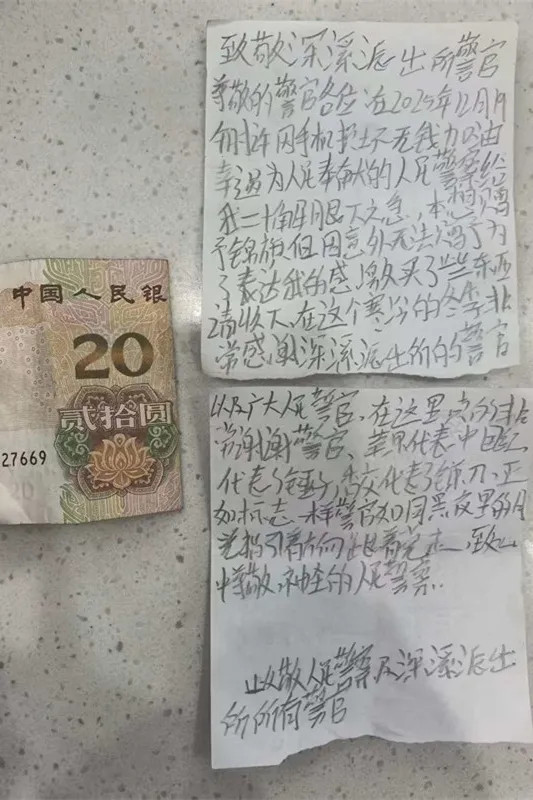 中国人民银
20
贰拾圆
27669
20
致敬深溪派出所警官
尊敬的警官各位在2025年12月1日
因手机 无钱 由
幸遇为人民奉献的人民警察给
我二十解燃眉之急，本想赠
予锦旗但因意外无法赠予为
了表达我的感激买了些东西
请收下，在这个寒冷的冬季非
常感谢深溪派出所的警官
以及广大人民警官，在这里真的非
常谢谢警官、苹果代表中国红
代表了锤，香交代表了镰刀、正
如标志一样警官如同黑夜里的月
光指引着方向 着光 致心
中尊敬、神圣的人民警察.
致敬人民警察及深溪派出
所所有警官